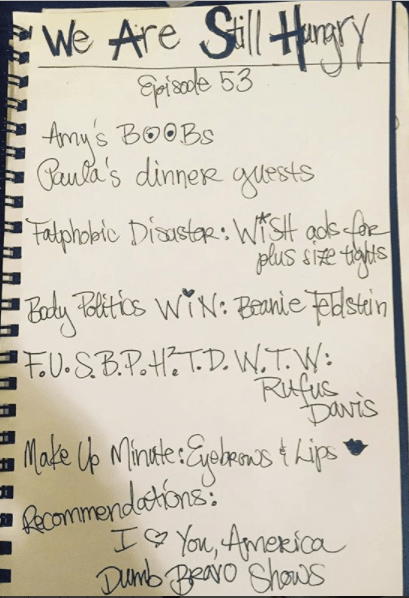 We Are Still Hungry
Episode 53
Amy's BOOBs
Paula's dinner guests
Fatphobic Disaster: WiSH ads for
plus size tights
Body Politics WiN: Beanie Feldstein
F.U.S.B.P.H².T.D.W.T.W:
Rufus
Davis
Make Up Minute: Eyebrows & Lips
Recommendations:
I ♡ You, America
Dumb Bravo Shows